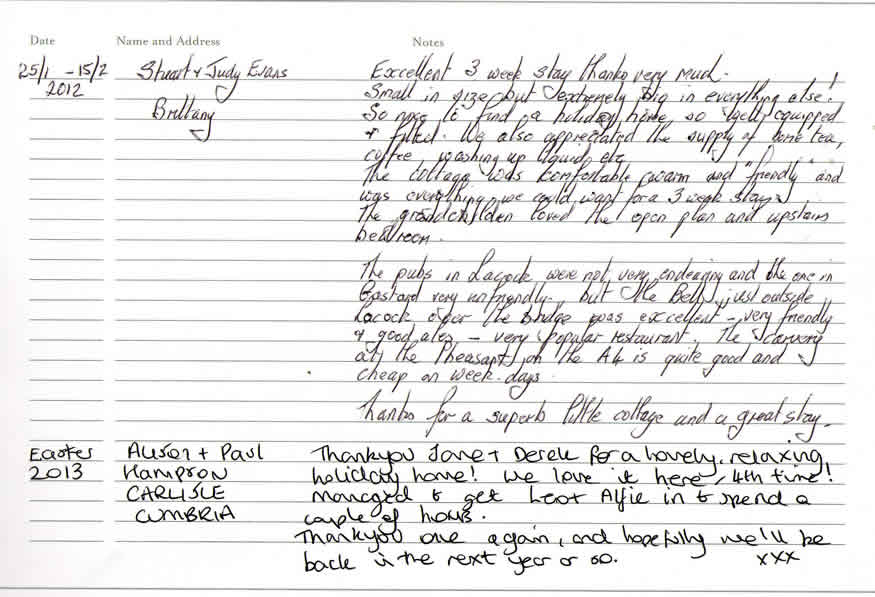 Date Name and Address Notes
25/1 - 15/2 Stuart + Judy Evans Excellent 3 week stay thanks very much.
2012 Small in size but extremely big in everything else!
Brittany So nice to find a holiday home so well equipped
+ fitted. We also appreciated the supply of some tea,
coffee, washing up liquid, etc
The cottage was comfortable, warm and "friendly" and
was everything we could want for a 3 week stay.
The grandchildren loved the open plan and upstairs
bedroom.
The pubs in Lacock were not very endearing and the one in
Gastard very unfriendly. but the Bell, just outside
Lacock over the bridge was excellent - very friendly
+ good ales - very popular restaurant. The carvery
at the Pheasant on the A4 is quite good and
cheap on week-days.
Thanks for a superb little cottage and a great stay.
Easter Alison + Paul Thankyou Jane + Derek for a lovely, relaxing
2013 Hampron holiday home! We love it here, 4th time!
CARLISLE managed to get Alfie in to spend a
CUMBRIA couple of hours.
Thankyou once again, and hopefully we'll be
back in the next year or so. xxx